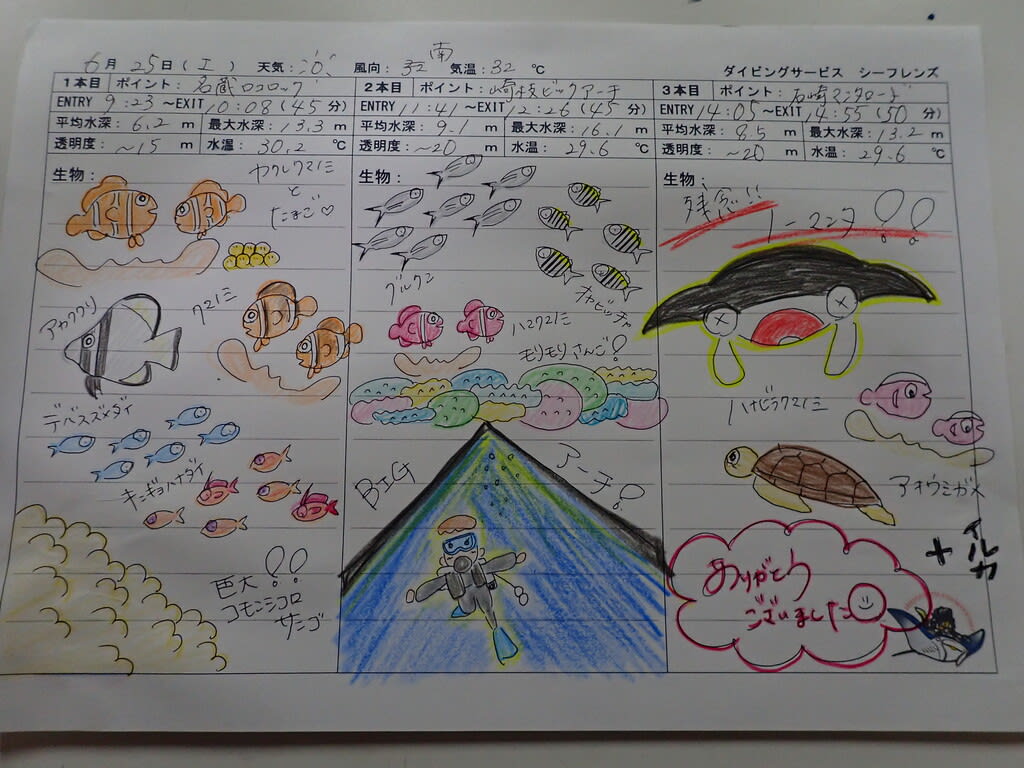 6月25日(土) 天気: 風向:南 気温:32℃
ダイビングサービス シーフレンズ
1本目 ポイント:名蔵ロロロック
ENTRY 9:23～EXIT 10:08(45分)
平均水深:6.2m 最大水深:13.3m
透明度:~15m 水温:30.2℃
生物:
ヤクシマクマノミ
と
たまご♡
アカククリ
クマノミ
デバスズメダイ
キンギョハナダイ
巨大!!
コモンシコロ
サンゴ
2本目 ポイント:崎枝ビッグアーチ
ENTRY 11:41～EXIT 12:26(45分)
平均水深:9.1m 最大水深:16.1m
透明度:~20m 水温:29.6℃
生物:
グルクン
オヤビッチャ
ハマクマノミ
モリモリさんご!
BIG アーチ!
3本目 ポイント:石崎マンタロード
ENTRY 14:05～EXIT 14:55(50分)
平均水深:8.5m 最大水深:13.2m
透明度:~20m 水温:29.6℃
生物:
残念…
ノーマンタ!!
ハナビラクマノミ
アオウミガメ
+イルカ
ありがとう
ございました